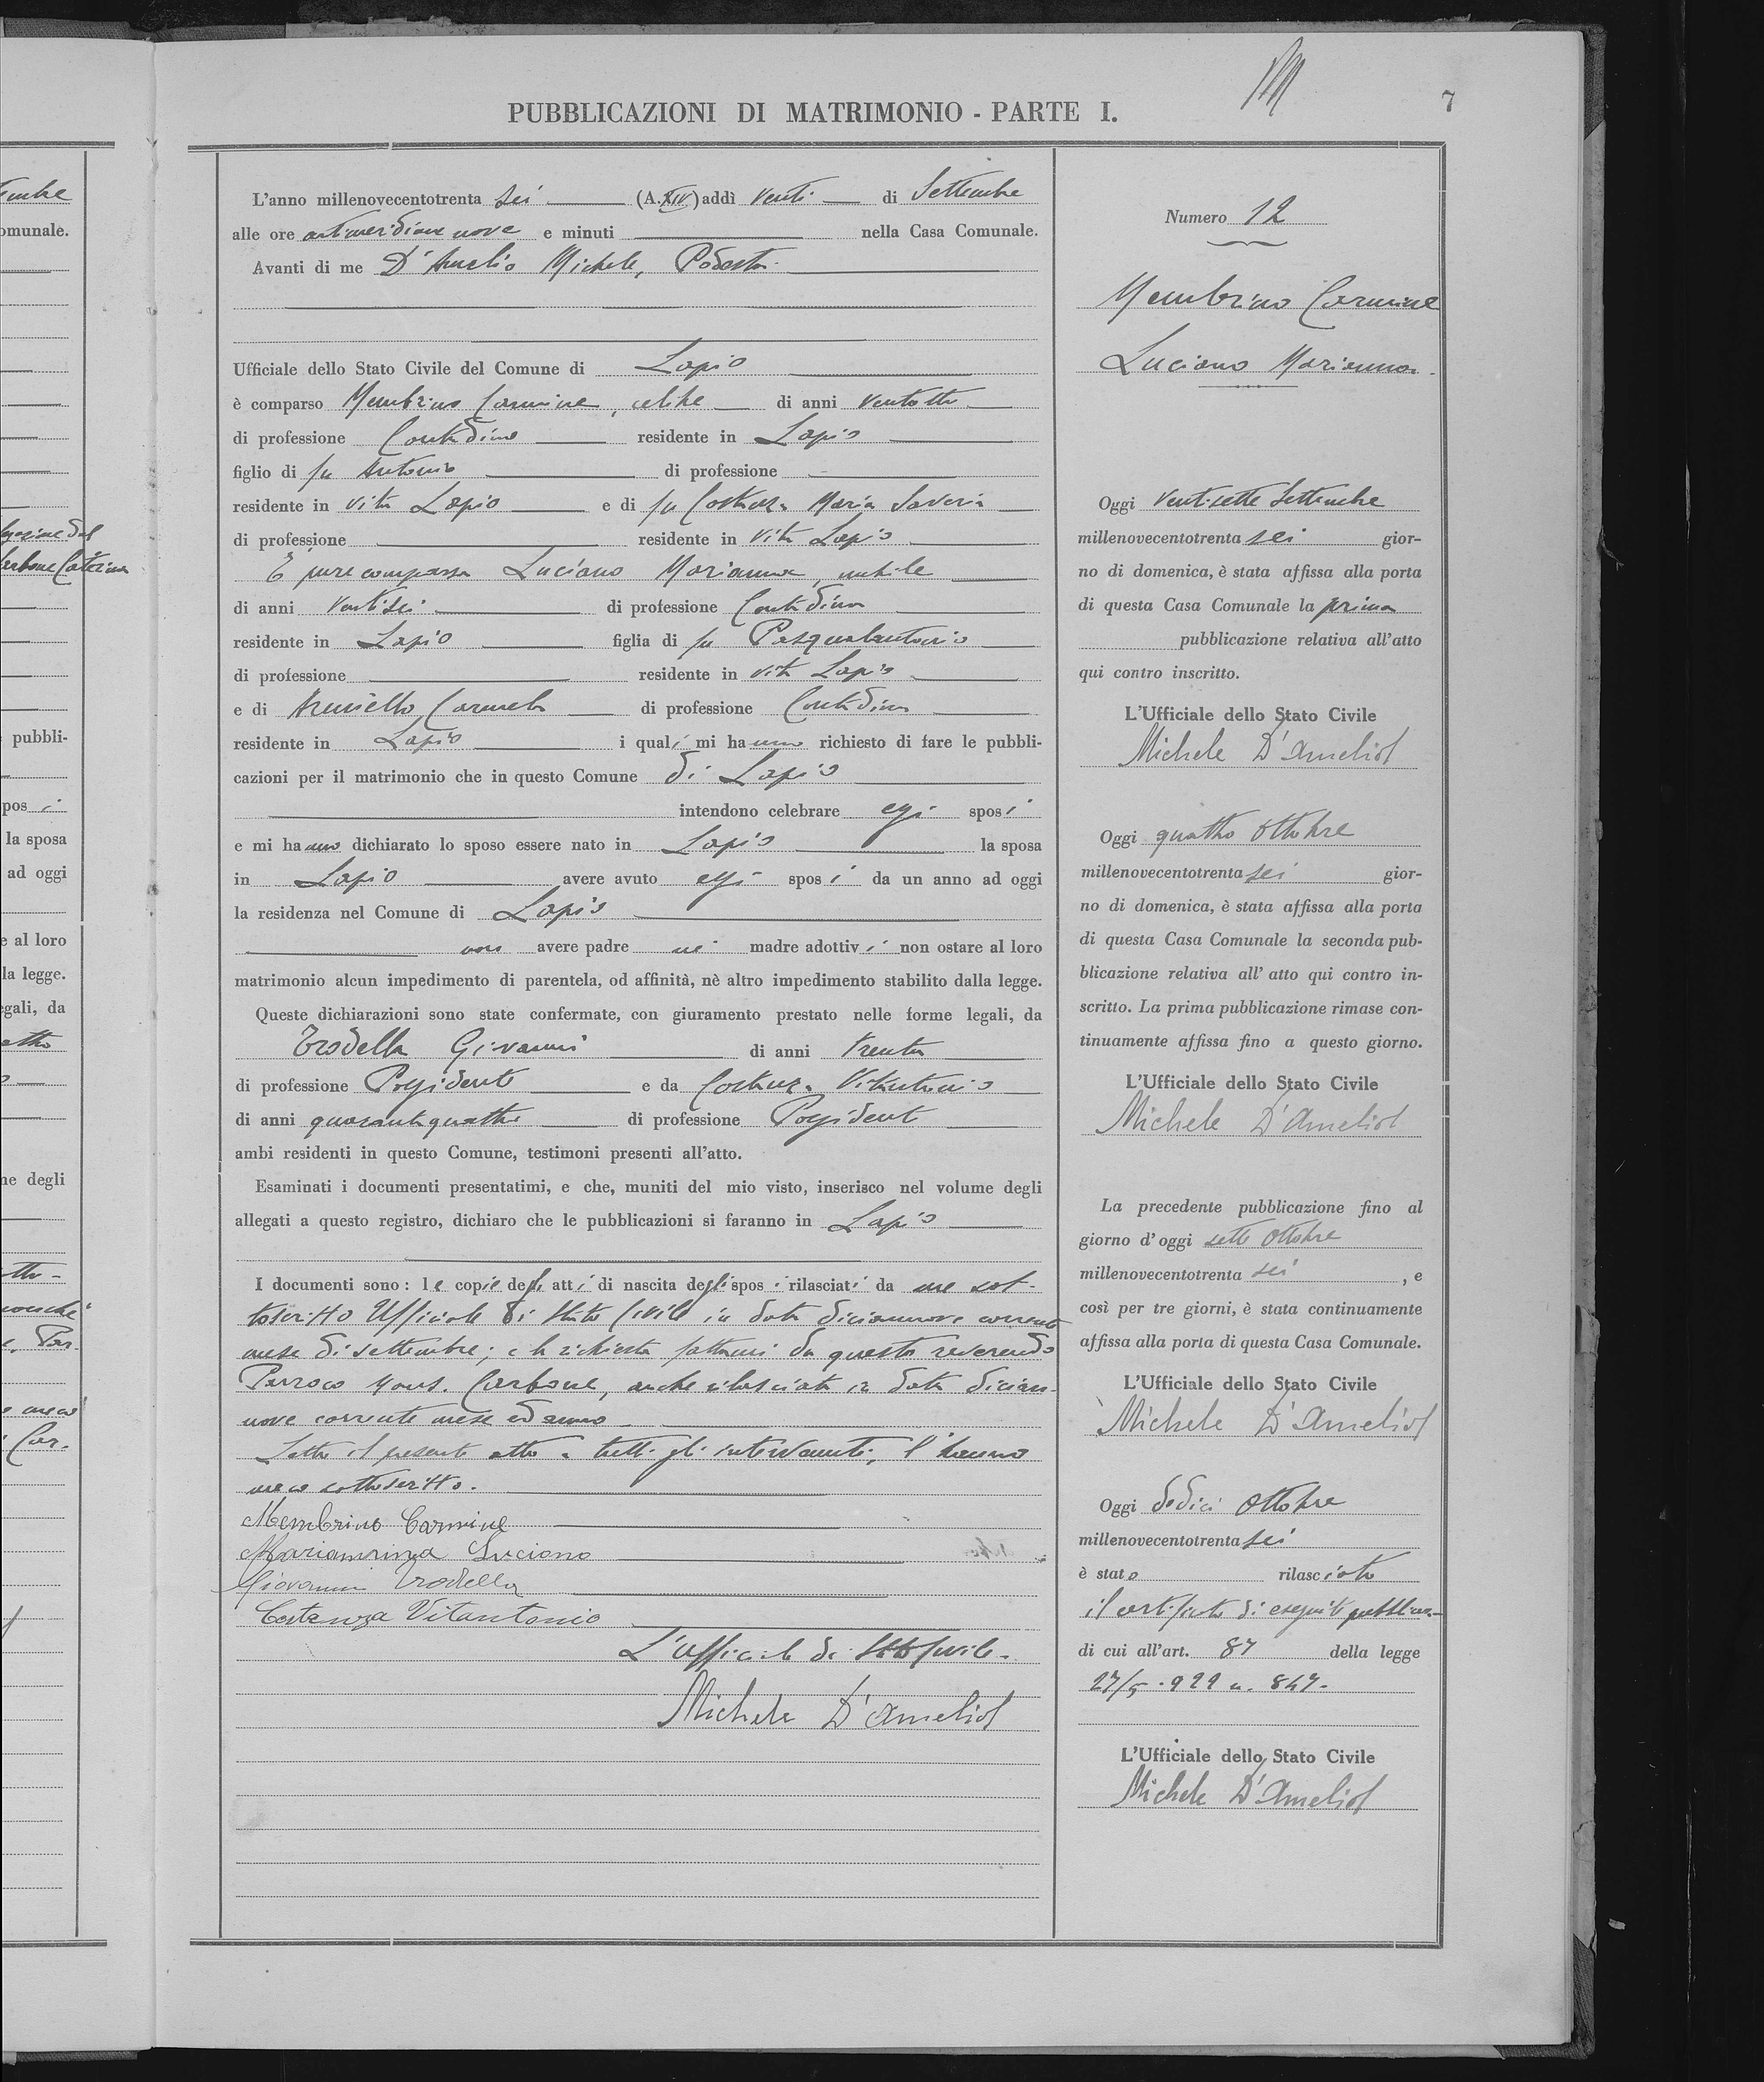 PUBBLICAZIONI DI MATRIMONIO - PARTE I.
7
L'anno millenovecentotrenta sei (A. XIV) addì venti di Settembre
alle ore antimeridiane nove e minuti nella Casa Comunale.
Avanti di me D'Amelio Michele, Podestà
Ufficiale dello Stato Civile del Comune di Lapio
è comparso Membrino Carmine, celibe di anni ventotto
di professione Contadino residente in Lapio
figlio di fu Antonio di professione
residente in vita Lapio e di fu Costanza Maria Saveria
di professione residente in vita Lapio
È pure comparsa Luciano Marianna, nubile
di anni ventisei di professione Contadina
residente in Lapio figlia di fu Pasqualantonio
di professione residente in vita Lapio
e di Carmela di professione Contadina
residente in Lapio i quali mi hanno richiesto di fare le pubbli-
cazioni per il matrimonio che in questo Comune di Lapio
intendono celebrare essi sposi
e mi hanno dichiarato lo sposo essere nato in Lapio la sposa
in Lapio avere avuto essi sposi da un anno ad oggi
la residenza nel Comune di Lapio
non avere padre nè madre adottivi non ostare al loro
matrimonio alcun impedimento di parentela, od affinità, nè altro impedimento stabilito dalla legge.
Queste dichiarazioni sono state confermate, con giuramento prestato nelle forme legali, da
Trodella Giovanni di anni trenta
di professione Possidente e da Costanza Vitantonio
di anni quarantaquattro di professione Possidente
ambi residenti in questo Comune, testimoni presenti all'atto.
Esaminati i documenti presentatimi, e che, muniti del mio visto, inserisco nel volume degli
allegati a questo registro, dichiaro che le pubblicazioni si faranno in Lapio
I documenti sono: le copie degli atti di nascita degli sposi rilasciati da me sot-
toscritto Ufficiale di Stato Civile in data diciannove corrente
mese di settembre; e la richiesta fattami da questo reverendo
Parroco Mons. Carbone, anche rilasciata in data dician-
nove corrente mese ed anno
Letto il presente atto a tutti gli intervenuti, l'hanno
meco sottoscritto.
Membrino Carmine
Mariannina Luciano
Giovanni Trodella
Costanza Vitantonio
L'Ufficiale di Stato Civile-
Michele D'Amelio
Numero 12
Membrino Carmine
Luciano Marianna
Oggi ventisette Settembre
millenovecentotrenta sei gior-
no di domenica, è stata affissa alla porta
di questa Casa Comunale la prima
pubblicazione relativa all'atto
qui contro inscritto.
L'Ufficiale dello Stato Civile
Michele D'Amelio
Oggi quattro Ottobre
millenovecentotrenta sei gior-
no di domenica, è stata affissa alla porta
di questa Casa Comunale la seconda pub-
blicazione relativa all'atto qui contro in-
scritto. La prima pubblicazione rimase con-
tinuamente affissa fino a questo giorno.
L'Ufficiale dello Stato Civile
Michele D'Amelio
La precedente pubblicazione fino al
giorno d'oggi sette Ottobre
millenovecentotrenta sei, e
così per tre giorni, è stata continuamente
affissa alla porta di questa Casa Comunale.
L'Ufficiale dello Stato Civile
Michele D'Amelio
Oggi dodici Ottobre
millenovecentotrenta sei
è stato rilasciato
il certificato di eseguite pubblicaz-
di cui all'art. 87 della legge
27/5.929 n. 847-
L'Ufficiale dello Stato Civile
Michele D'Amelio